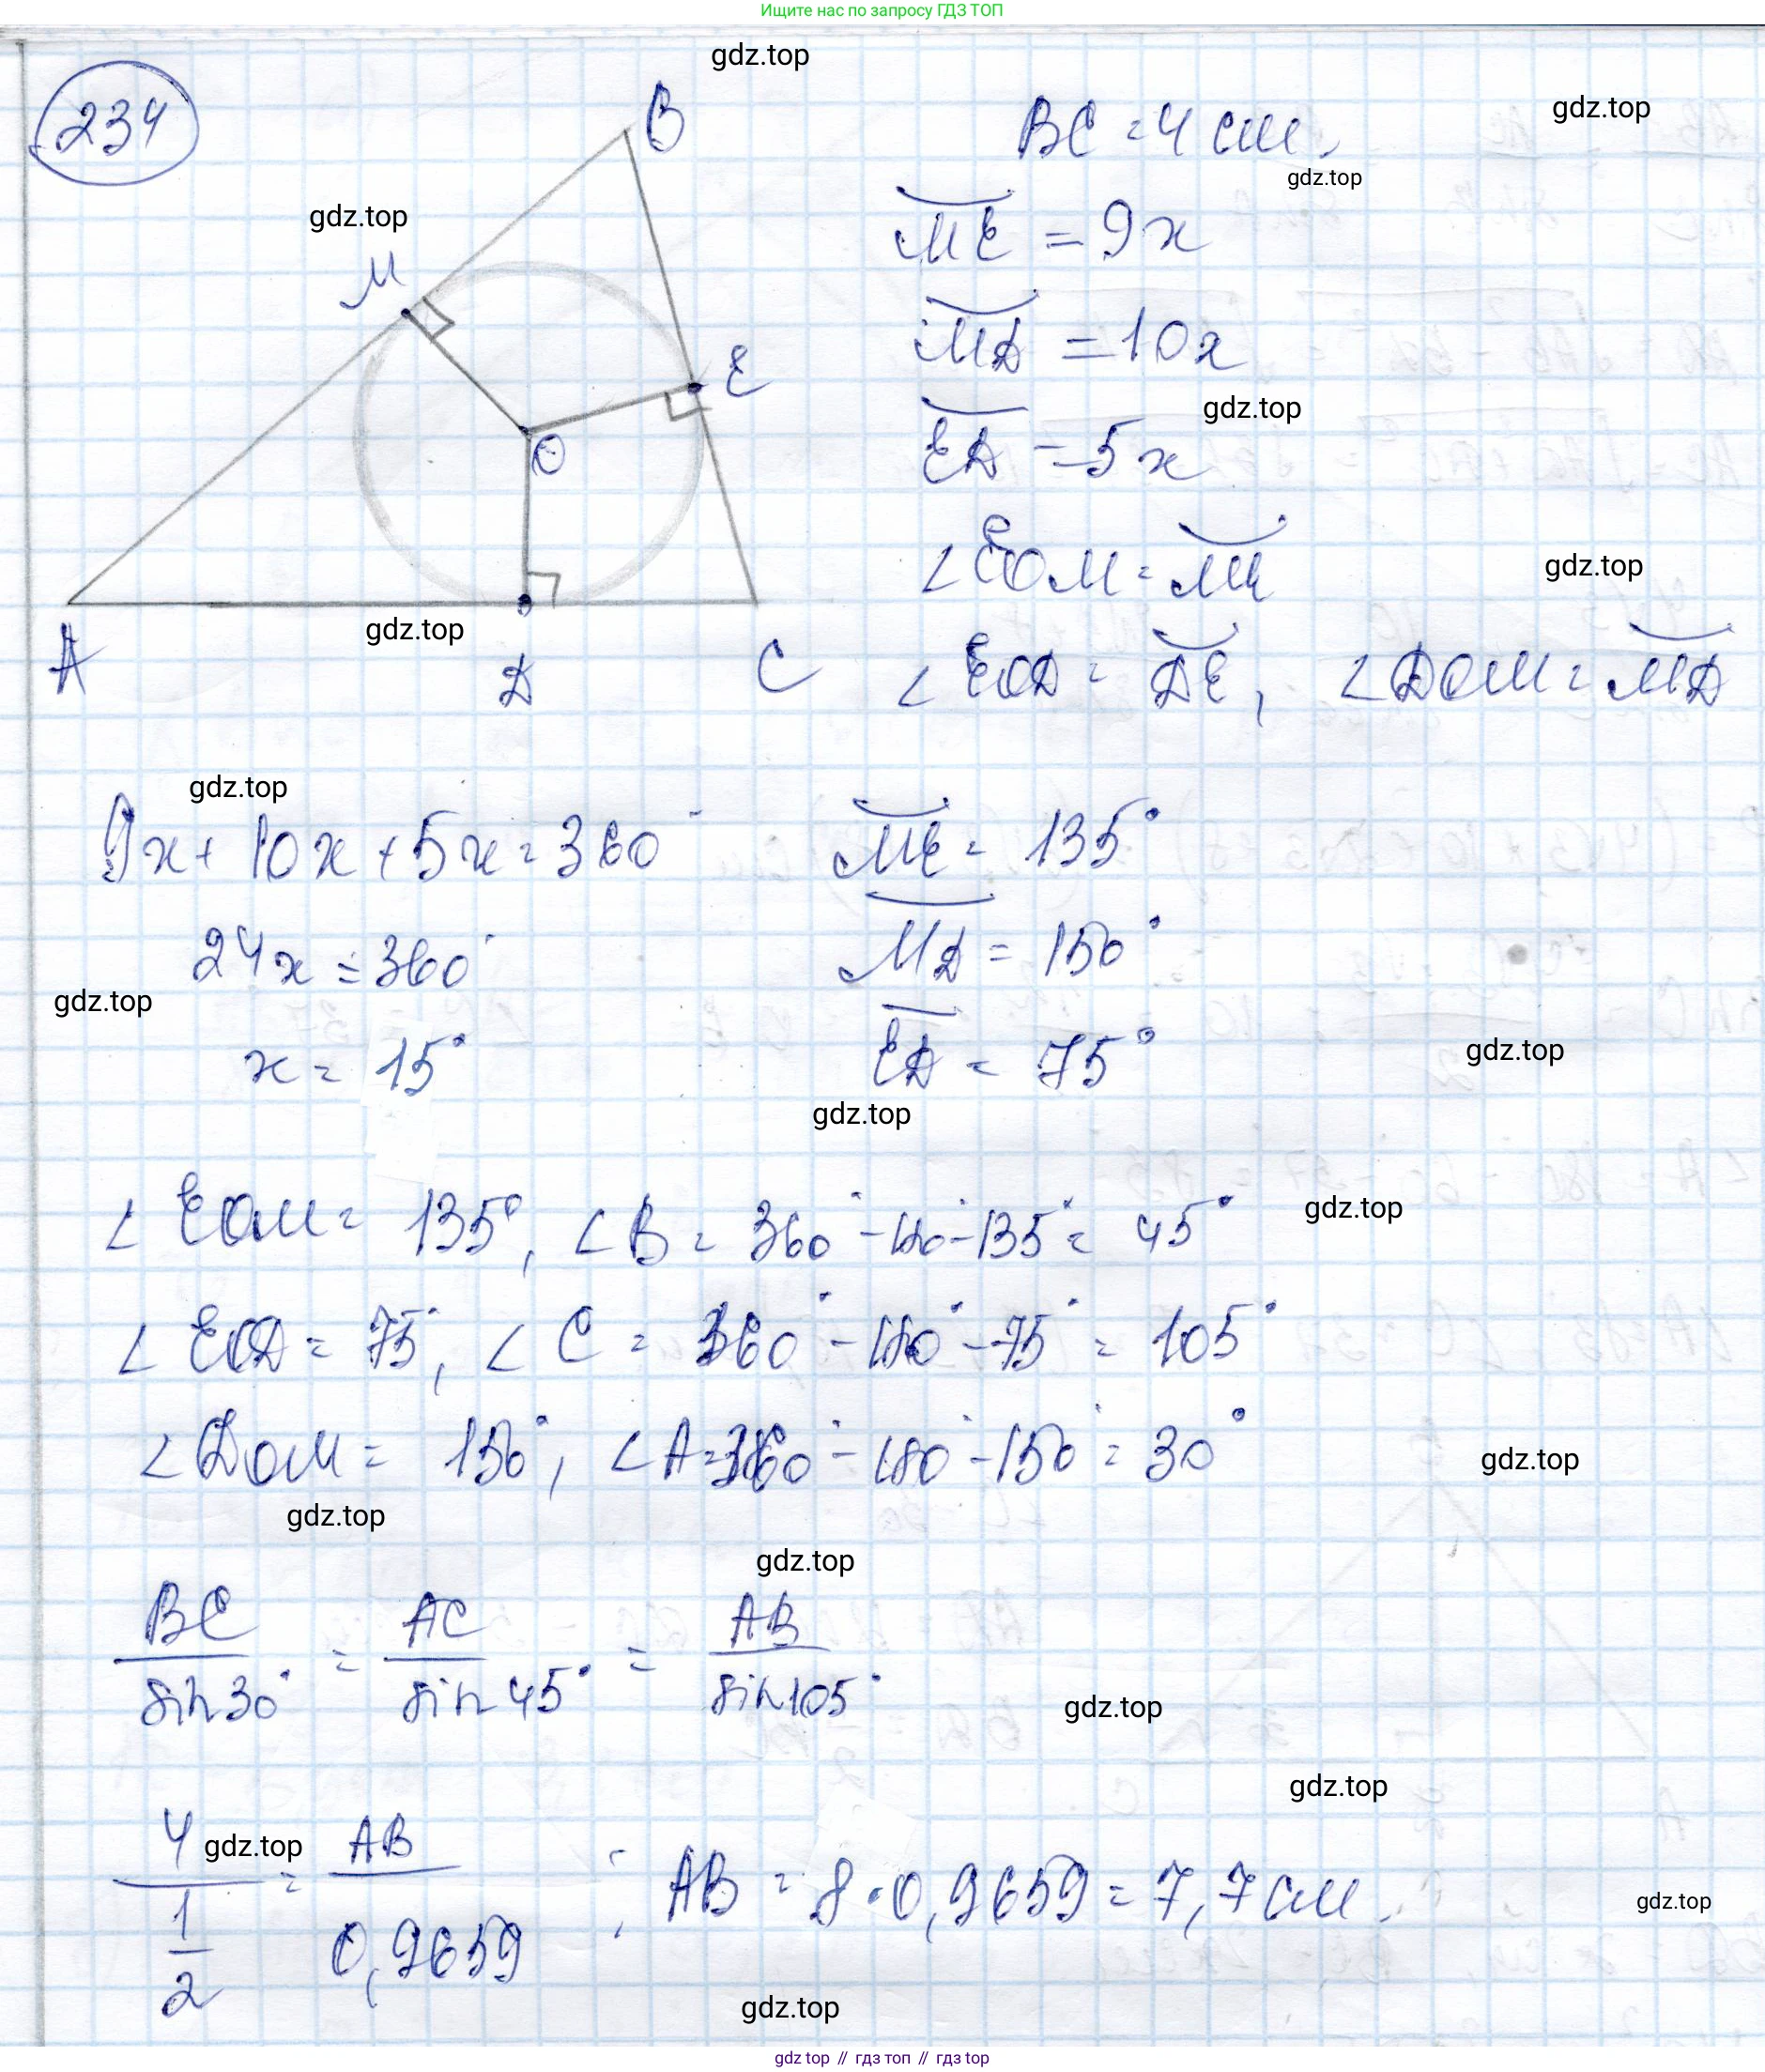 Ищите нас по запросу ГДЗ ТОП
gdz.top
234
B
BC = 4 см.
gdz.top
gdz.top
gdz.top
ME = 9x
M
MD = 10x
E
gdz.top
ED = 5x
O
∠EOM = ME
gdz.top
gdz.top
A
D
C
∠EOD = DE, ∠DOM = MD
gdz.top
9x + 10x + 5x = 360°
ME = 135°
24x = 360°
MD = 150°
gdz.top
x = 15°
ED = 75°
gdz.top
gdz.top
∠EOM = 135°, ∠B = 360° - 180° - 135° = 45°
gdz.top
∠EOD = 75°, ∠C = 360° - 180° - 75° = 105°
∠DOM = 150°, ∠A = 360° - 180° - 150° = 30°
gdz.top
gdz.top
gdz.top
BC/sin30° = AC/sin45° = AB/sin105°
gdz.top
gdz.top
4/(1/2) = AB/0,9659; AB = 8·0,9659 = 7,7 см.
gdz.top
gdz.top
gdz.top
gdz.top // гдз топ // гдз top